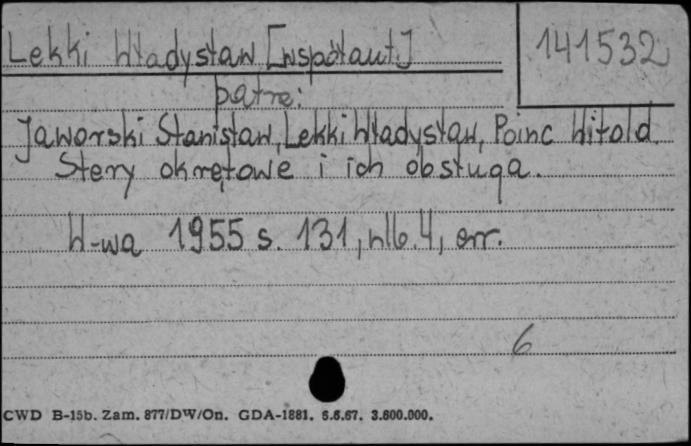 Lekki Władysław [współaut.]
141532
patrz:
Jaworski Stanisław, Lekki Władysław, Poinc Witold.
Stery okrętowe i ich obsługa.
W-wa 1955 s. 131, nlb. 4, err.
6
CWD B-15b. Zam. 877/DW/On. GDA-1881. 5.6.67. 3.600.000.